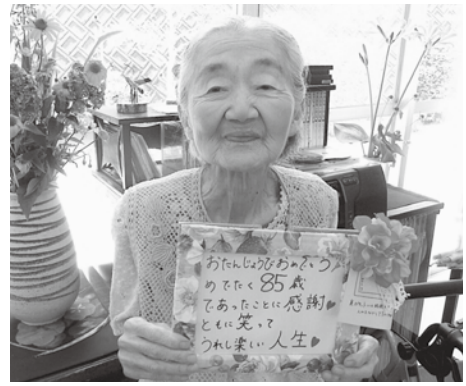 おたんじょうびおめでとう
めでたく85歳
であったことに感謝♥
ともに笑って
うれし楽しい人生♥